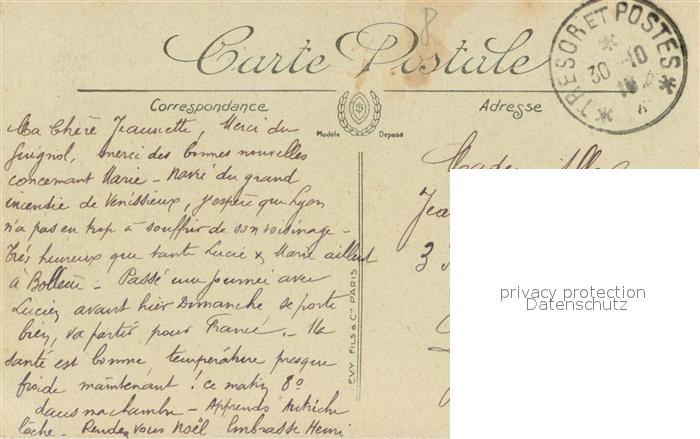 8
Carte Postale
TRESOR ET POSTES
30-10
18
Correspondance
Adresse
Modèle Déposé
Ma Chère Jeannette, Merci du
guignol, merci des bonnes nouvelles
concernant Marie - Navré du grand
incendie de Venissieux, j'espère que Lyon
n'a pas eu trop à souffrir de son voisinage -
Très heureux que tante Lucie & Marie aillent
à Bollène - Passé une journée avec
Lucien avant hier Dimanche se porte
bien, va partir pour France. - Ma
santé est bonne température presque
froide maintenant ! ce matin 8°
dans ma chambre - Apprends Autriche
lâche - Rendez vous Noël Embrasse Henri
EVY FILS & Cie PARIS
3
privacy protection
Datenschutz